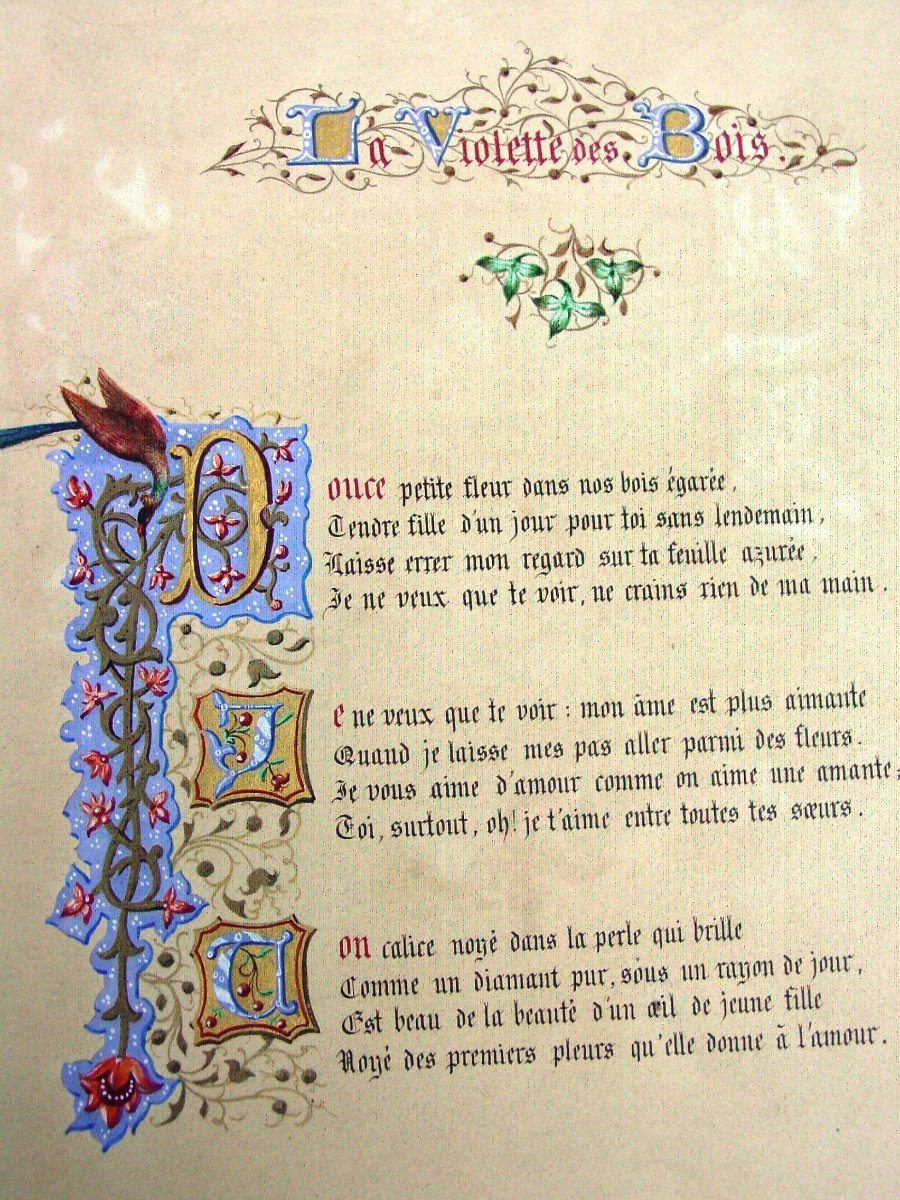 La Violette des Bois.
Douce petite fleur dans nos bois égarée,
Tendre fille d'un jour pour toi sans lendemain,
Laisse errer mon regard sur ta feuille azurée,
Je ne veux que te voir, ne crains rien de ma main.
Je ne veux que te voir : mon âme est plus aimante
Quand je laisse mes pas aller parmi des fleurs.
Je vous aime d'amour comme on aime une amante;
Toi, surtout, oh! je t'aime entre toutes tes sœurs.
Ton calice noyé dans la perle qui brille
Comme un diamant pur, sous un rayon de jour,
Est beau de la beauté d'un œil de jeune fille
Noyé des premiers pleurs qu'elle donne à l'amour.